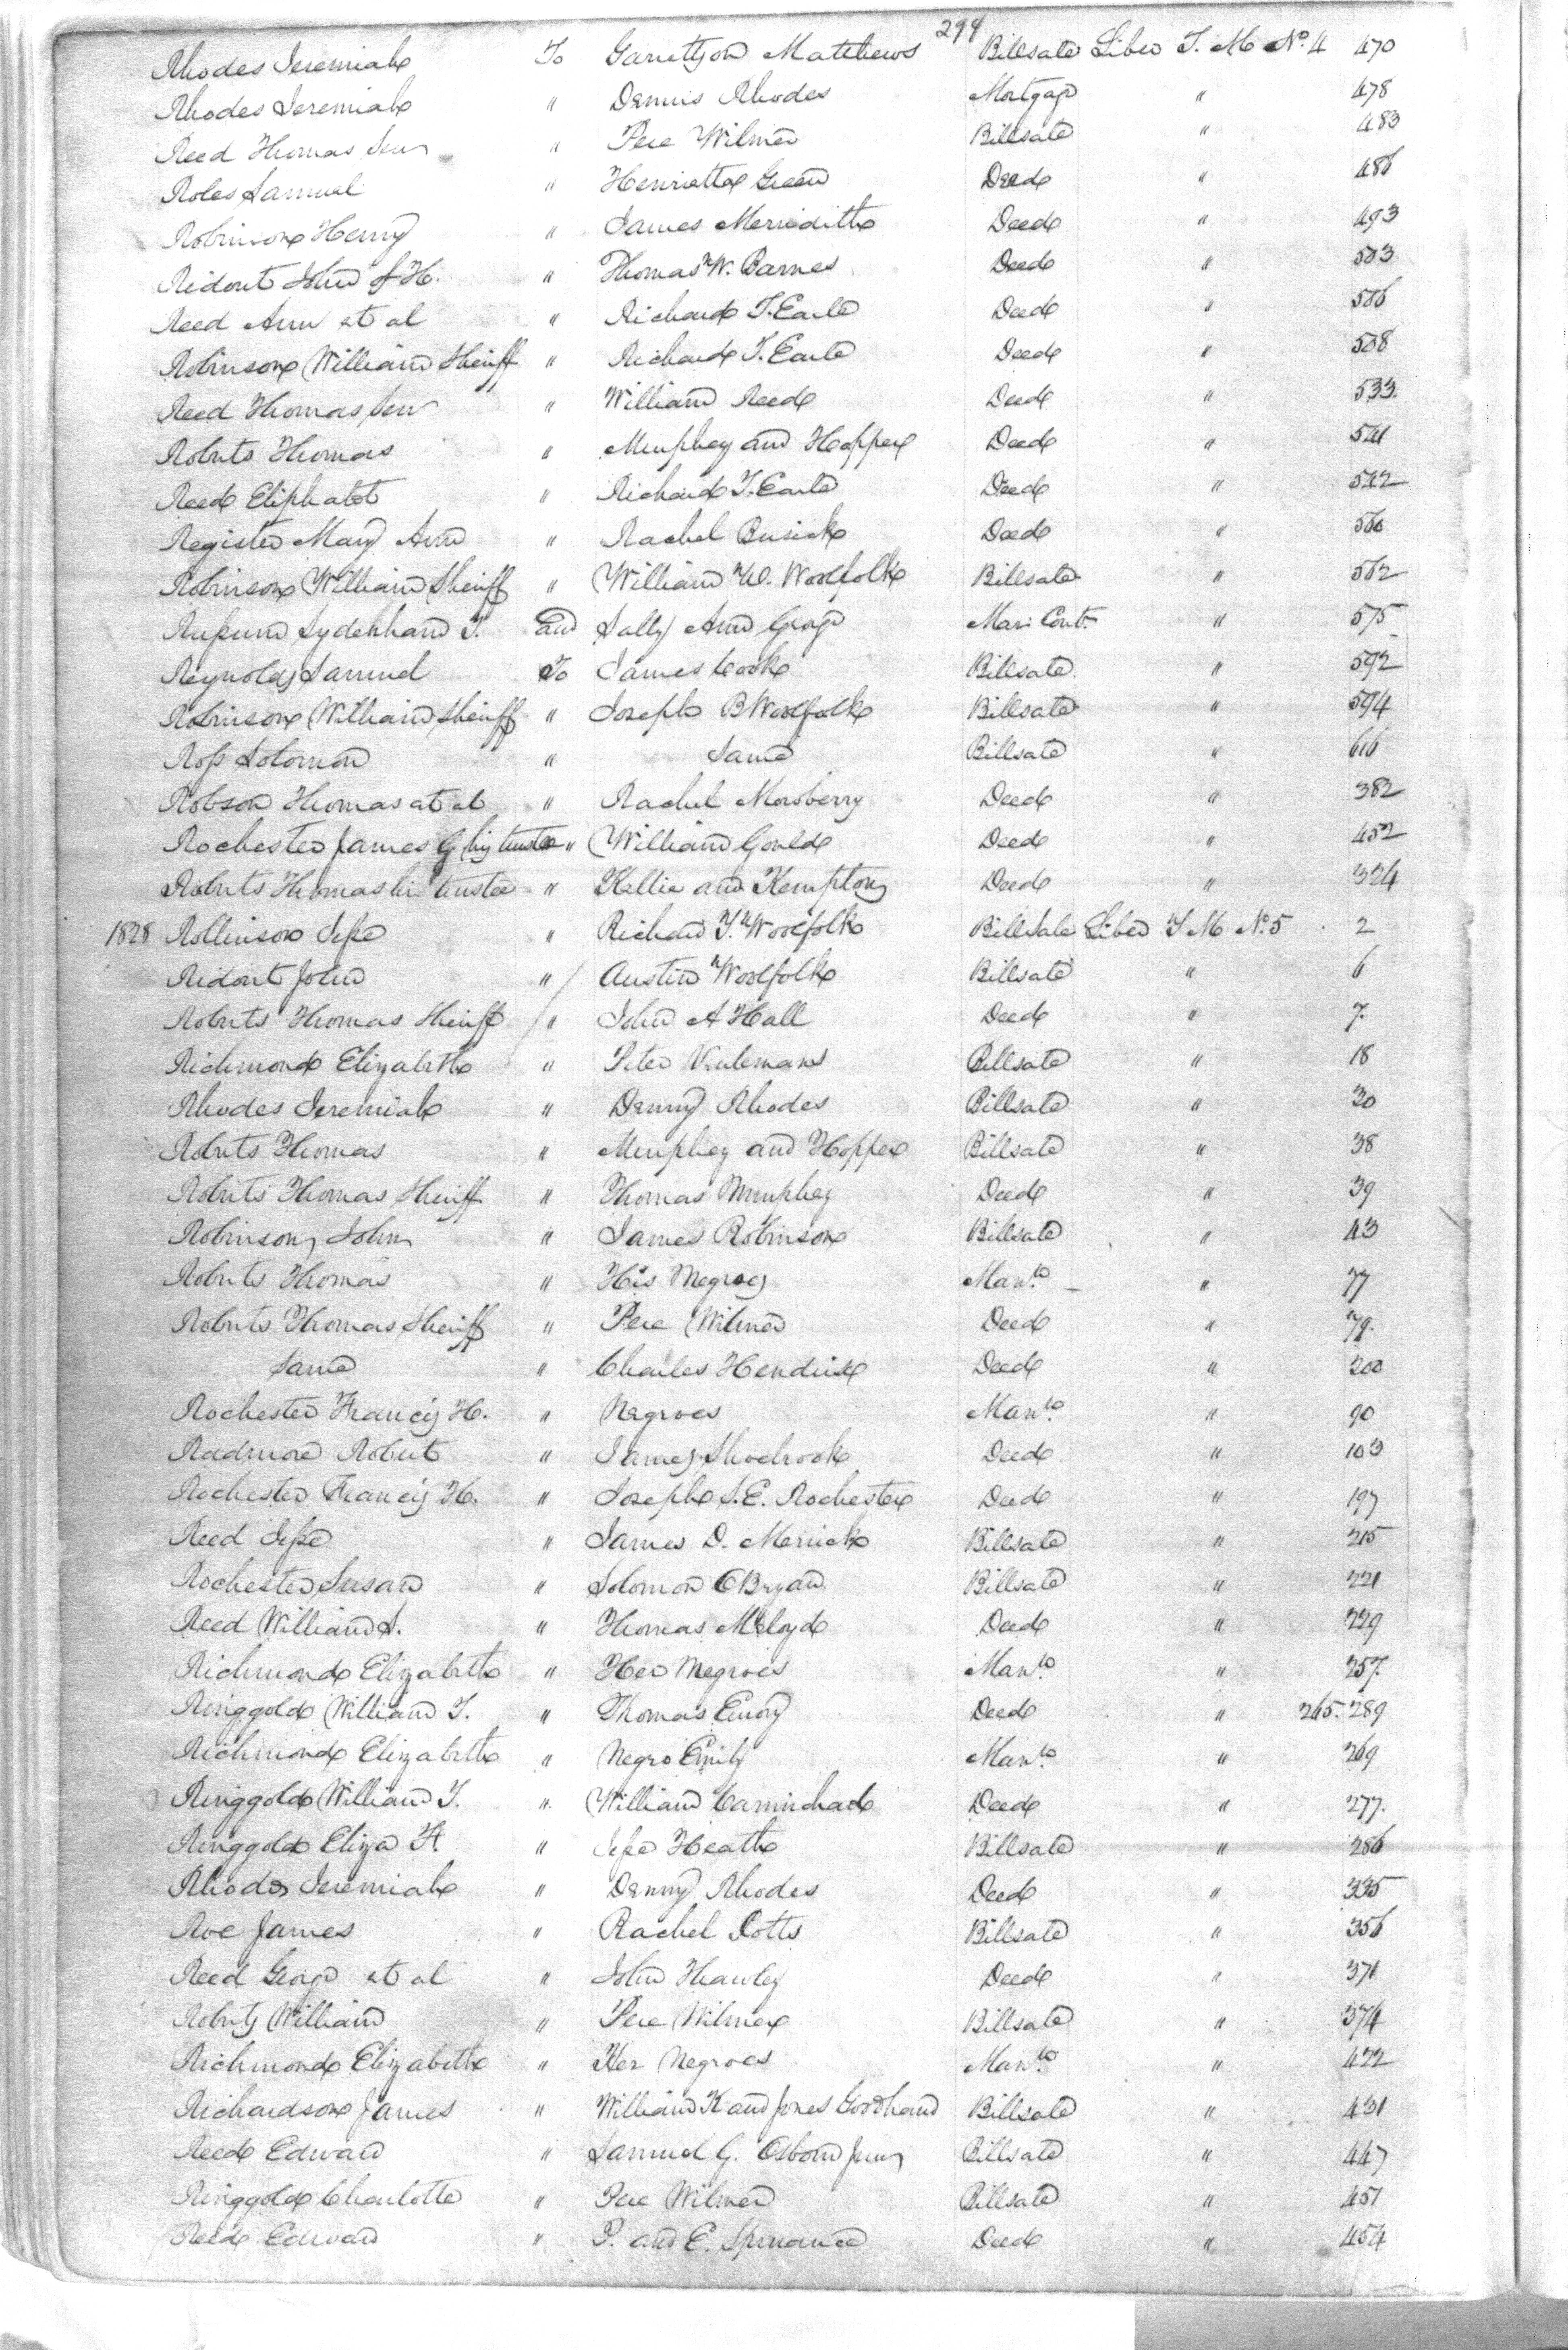 299
Rhodes Jeremiah To Garretson Matthews Billsale Liber T. M No. 4 470
Rhodes Jeremiah " Dennis Rhodes Mortgage " 478
Reed Thomas Senr " Pere Wilmer Billsale " 483
Roles Samuel " Henrietta Green Deed " 486
Robinson Henry " James Merredith Deed " 493
Ridout John of H. " Thomas W. Barnes Deed " 503
Reed Ann et al " Richard T. Earle Deed " 506
Robinson William Sheriff " Richard T. Earle Deed " 508
Reed Thomas Senr " William Reed Deed " 533
Roberts Thomas " Murphey and Hopper Deed " 541
Reed Eliphalet " Richard T. Earle Deed " 542
Register Mary Ann " Rachel Busick Deed " 560
Robinson William Sheriff " William W. Woolfolk Billsale " 562
Rupum Sydenham T. and Sally Ann George Mari: Cont. " 575
Reynolds Samuel To James Cook Billsale " 592
Robinson William Sheriff " Joseph B Woolfolk Billsale " 594
Ross Solomon " Same Billsale " 616
Robson Thomas et al " Rachel Mowberry Deed " 382
Rochester James G his trustee " William Gould Deed " 452
Roberts Thomas his trustee " Kellie and Kempton Deed " 324
1828 Rollinson Jesse " Richard T. Woolfolk Billsale Liber T M No. 5 2
Ridout John " Austin Woolfolk Billsale " 6
Roberts Thomas Sheriff " John A Hall Deed " 7
Richmond Elizabeth " Peter Billsale " 18
Rhodes Jeremiah " Denny Rhodes Billsale " 30
Roberts Thomas " Murphey and Hopper Billsale " 38
Roberts Thomas Sheriff " Thomas Murphey Deed " 39
Robinson John " James Robinson Billsale " 43
Roberts Thomas " His Negroes Manto. " 77
Roberts Thomas Sheriff " Pere Wilmer Deed " 79.
Same " Charles Hendrix Deed " 200
Rochester Francis H. " Negroes Manto. " 90
Radmore Robert " James Shodrook Deed " 103
Rochester Francis H. " Joseph S. E. Rochester Deed " 197
Reed Jesse " James D. Merrick Billsale " 215
Rochester Susan " Solomon OBryan Billsale " 221
Reed William S. " Thomas McCloyd Deed " 229
Richmond Elizabeth " Her Negroes Manto. " 257.
Ringgold William T. " Thomas Emory Deed " 265. 289
Richmond Elizabeth " Negro Emily Manto. " 269
Ringgold William T. " William Carmichael Deed " 277.
Ringgold Eliza F. " Jesse Heath Billsale " 286
Rhodes Jeremiah " Denny Rhodes Deed " 335
Roe James " Rachel Potts Billsale " 356
Reed George et al " John Hawley Deed " 371
Roberts William " Pere Wilmer Billsale " 374
Richmond Elizabeth " Her Negroes Manto. " 422
Richardson James " William K and Jones Goodhand Billsale " 431
Reed Edward " Samuel G. Osborn Junr Billsale " 447
Ringgold Charlotte " Pere Wilmer Billsale " 451
Reed Edward " P. and E. Spruance Deed " 454